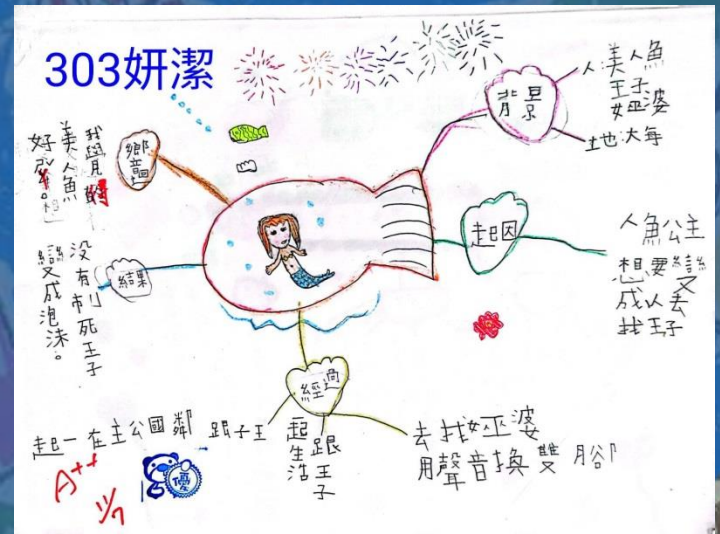 303妍潔
背景
人美人魚
王子
巫婆
地大每
起因
人魚公主
想要變
成人去
找王子
經過
去找巫婆
用聲音換雙腳
跟王子
起生活
起一在主公國鄰 跟子王
結果
沒有刺死王子
變成泡沫。
我覺
美人魚
好
A++
11/7
優